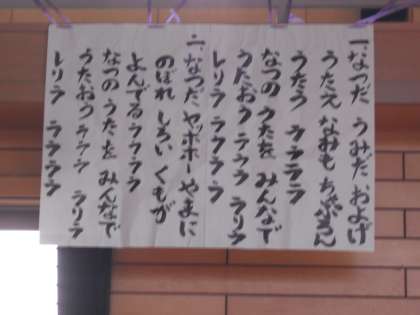 一、なつだ うみだ およげ
うたえ なみも ちゃぷろん
うたう ララララ
なつの うたを みんなで
うたおう ラララ ラリラ
レリラ ララララ
二、なつだ ヤッホホー やまに
のぼれ しろい くもが
よんでる ララララ
なつの うたを みんなで
うたおう ラララ ラリラ
レリラ ララララ